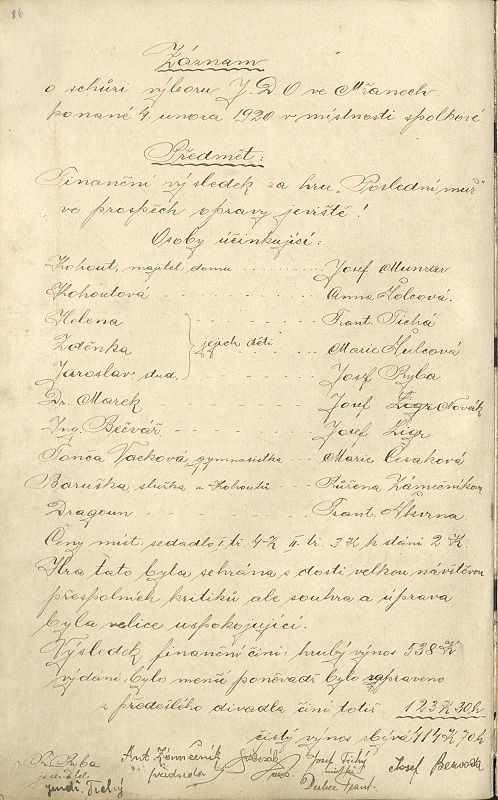 86
Záznam
o schůzi výboru J. D. O ve Mřanech
konané 4. února 1920 v místnosti spolkové
Předmět:
Finanční výsledek za hru „Poslední muž"
ve prospěch opravy jeviště!
Osoby účinkující:
Kohout, majitel domu . . . . . . . Josef Munzar
Kohoutová . . . . . . Anna Holcová.
Helena Frant. Tichá
Zdeňka } jejich děti . . . Marie Hulcová
Jaroslav, stud. Josef Ryba
Dr. Marek . . . . . . Josef Ligr Novák
Ing. Bečvář . . . . . . Josef Ligr
Tonca Vacková gymnasistka . . . Marie Čisaková
Baruška, služka u Kohoutů . . . Růžena Zámečníkov
Dragoun . . . . . . Frant. Škvrna.
Ceny míst, sedadlo I. tř. 4 K II. tř. 3 K k stání 2 K.
Hra tato byla sehrána s dosti velkou návštěvou
přespolních kritiků ale souhra a úprava
byla velice uspokojující.
Výsledek finanční činí: hrubý výnos 538 K
výdaní bylo menší poněvadž bylo zapraveno
z předešlého divadla činí totiž 123 K 30 h
čistý výnos zbývá 414 K, 70 h
Fr. Ryba
jednatel
Jindř. Tichý
Ant. Zámečník
předseda
Josef Tichý
Josef Bervada